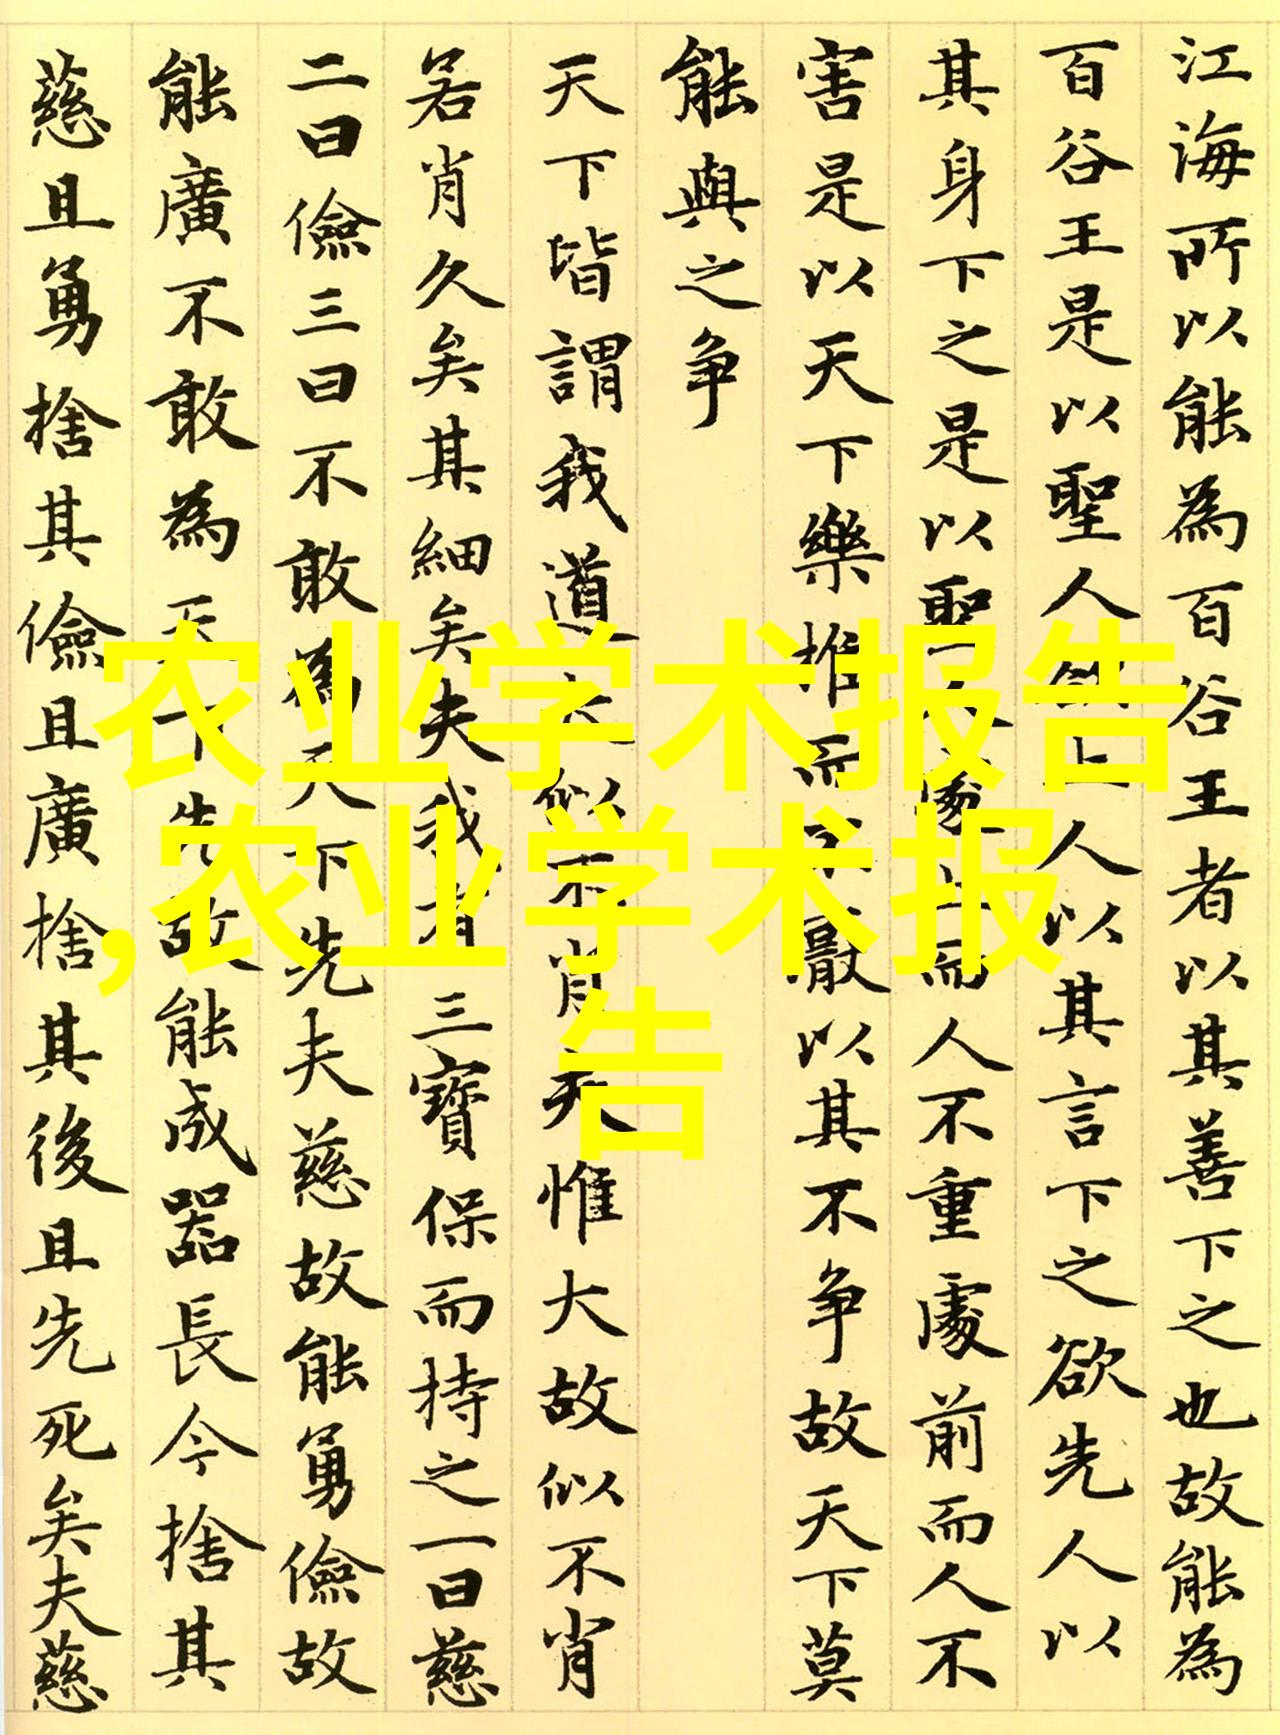 江海所以能為百谷王者以其善下之也故能為
百谷王是以聖人欲上人以其言下之欲先人以
其身下之是以聖人處上而人不重處前而人不
害是以天下樂推而不厭以其不争故天下莫
能與之争
天下皆謂我道大似不肖夫惟大故似不肖
若肖久矣其細矣夫我有三寶保而持之一曰慈
二曰儉三曰不敢為天下先夫慈故能勇儉故
能廣不敢為天下先故能成器長今捨其
慈且勇捨其儉且廣捨其後且先死矣夫慈
农业学术报告
,农业学术报
告